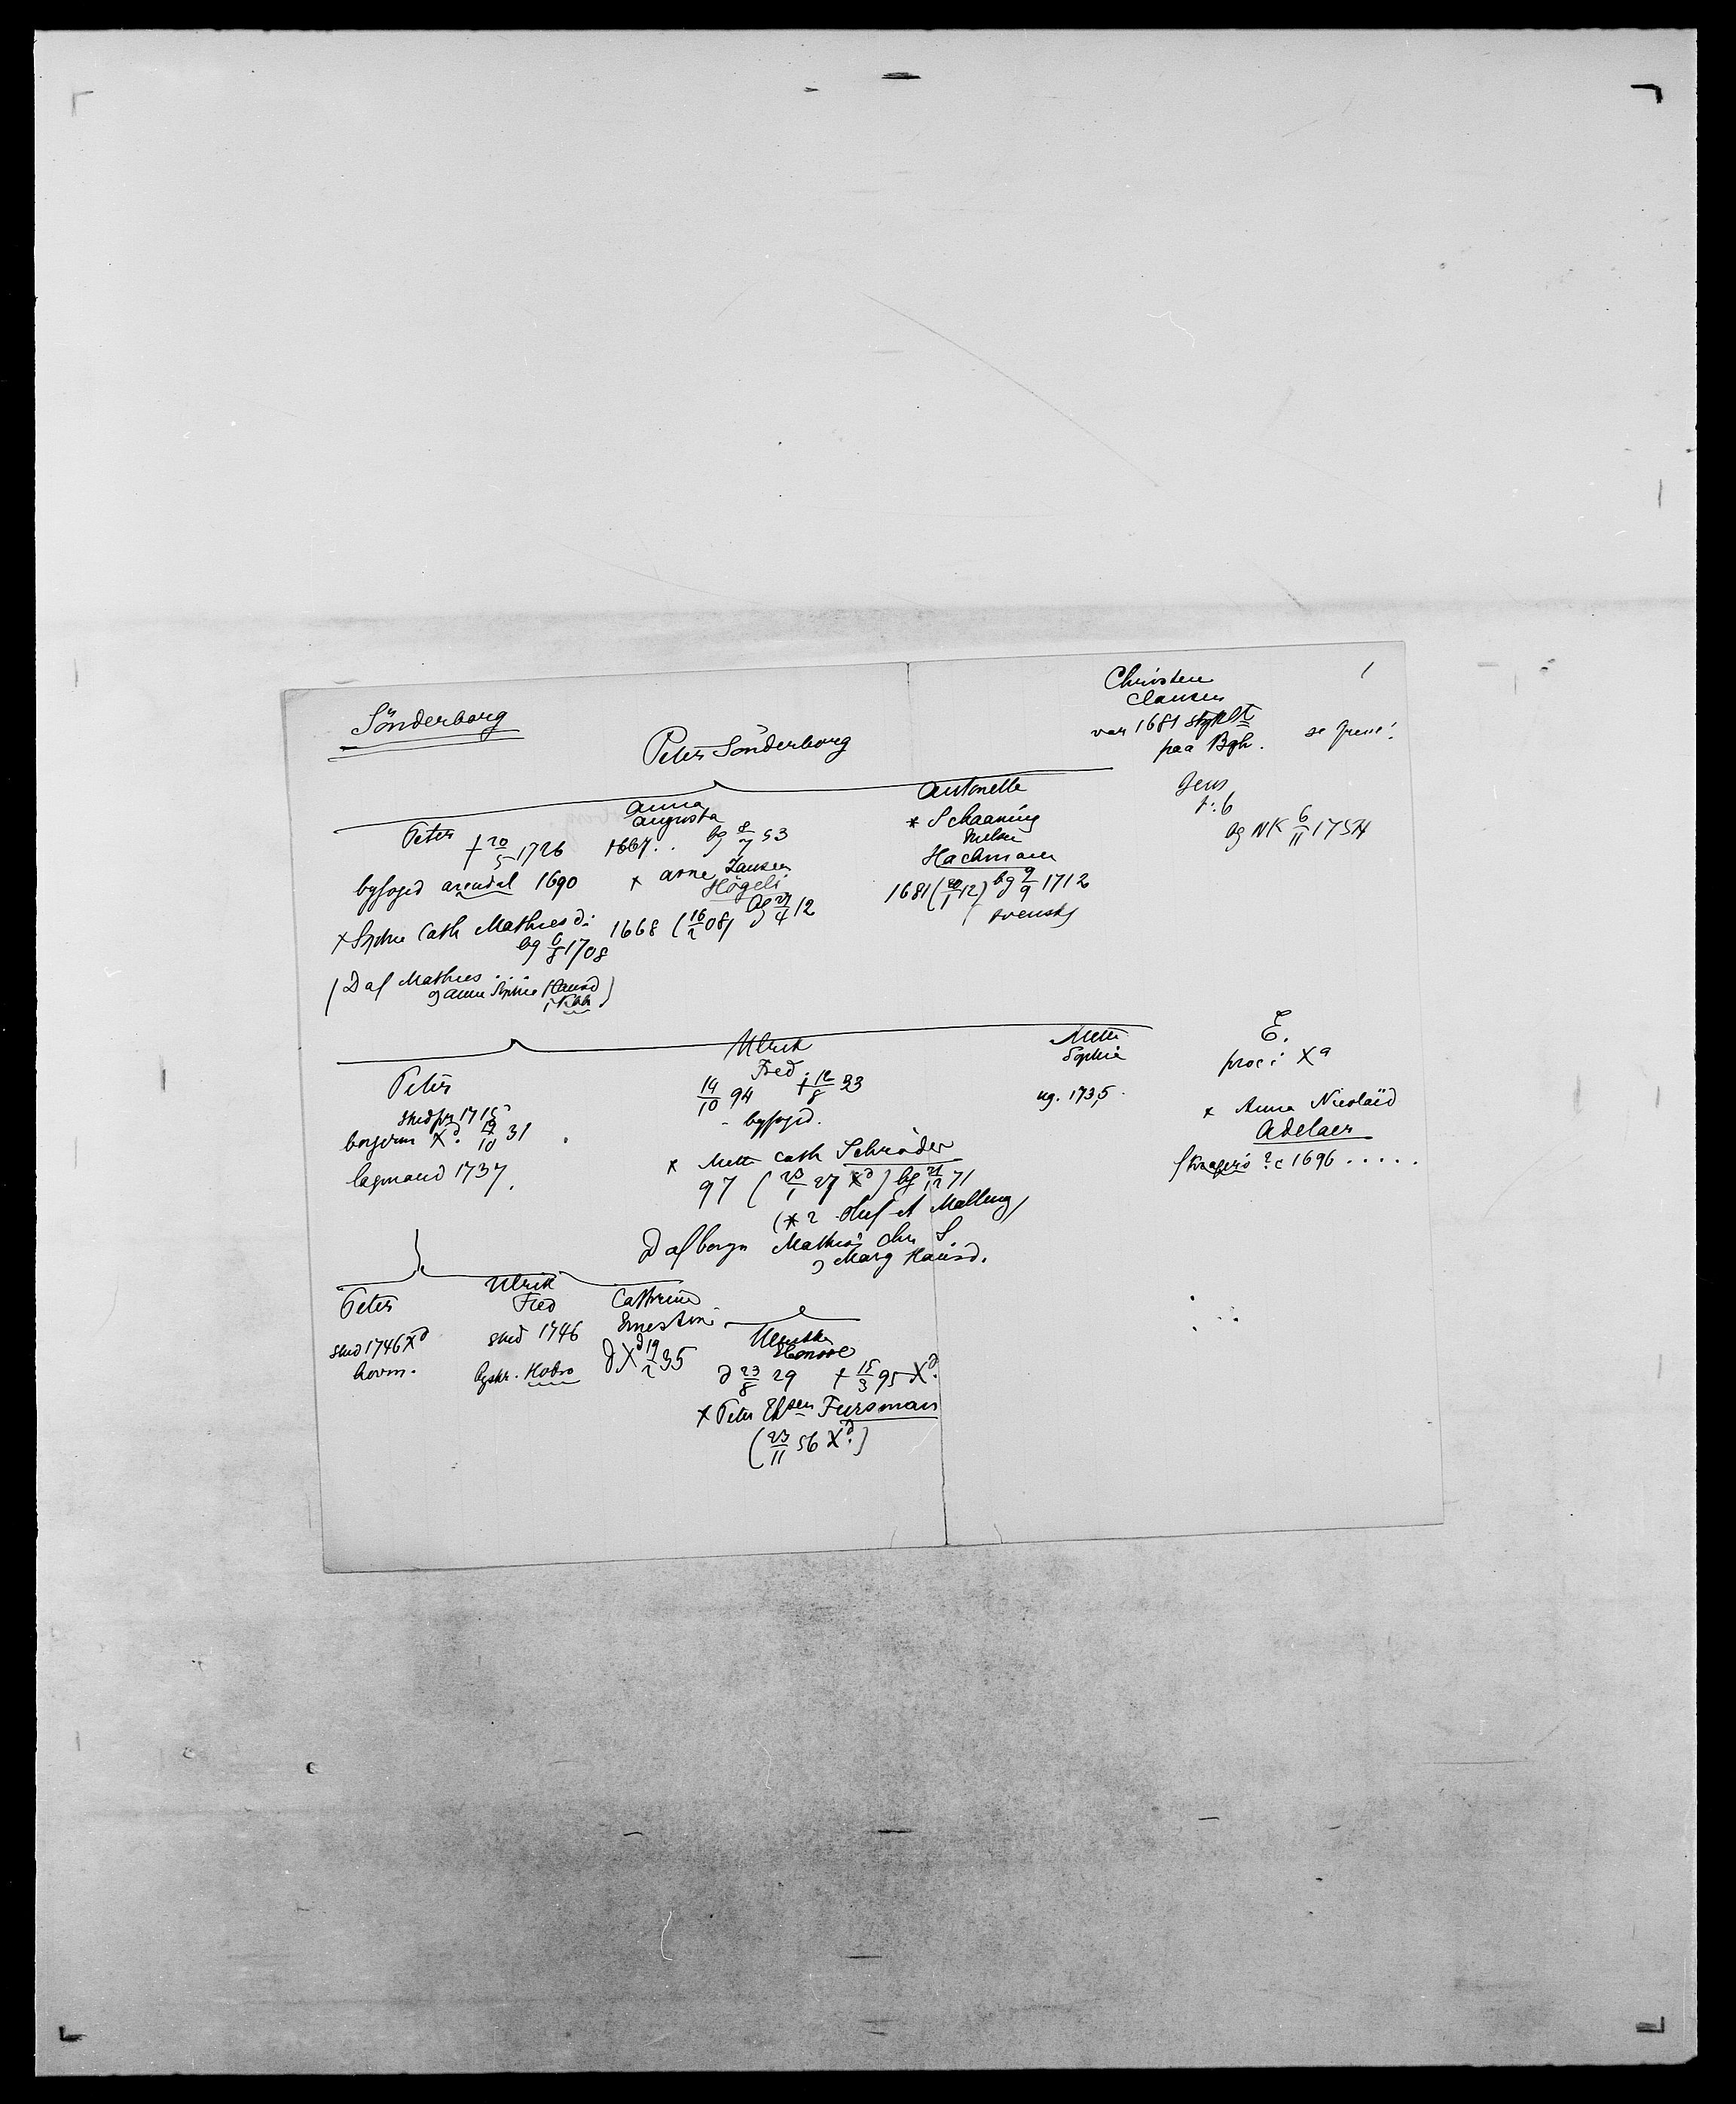 Sönderborg
Peter Sönderborg
Christen
Clausen
var 1681
paa Bgh.
1
Peter † 20/5 1726
byfoged Arendal 1690
× Sophie Cath Mathiesd:
bg 6/8 1708
(D af Mathies ...
og Anna Sophie Hansd
i Kbh)
Anna
Augusta
1667.. bg 8/7 53
× Arne Jansen
Högeli
1668 (16/2 08) bg 27/4 12
Antonette
* Schaaning
Nielsen
Hachmann
1681 (20/1 12) bg 9/9 1712
svensk
Jens
f: 6
bg NK 6/11 1754
Peter
1715
borgerm Xd. 19/10 31
lagmand 1737.
Ulrik
Fred.
14/10 94 † 12/8 33
- byfoged.
× Mette Cath Schrøder
97 (23/1 27 Xd) bg 21/12 71
(* 2 Oluf A Malling)
D af borgm Mathias Chr S.
og Marg Hansd.
Mette
Sophie
ug. 1735.
E.
proc i Xa
× Anna Nicolaid
Adelaer
Kragerö ? c 1696 .....
Peter
stud 1746 Xd
Ulrik
Fred
stud 1746
byskr. Hobro
Cathrine
Ernestine
d Xd 19/2 35
Ulrikke
d 23/8 29 † 15/3 95 Xd.
× Peter Fursman
(23/11 56 Xd.)